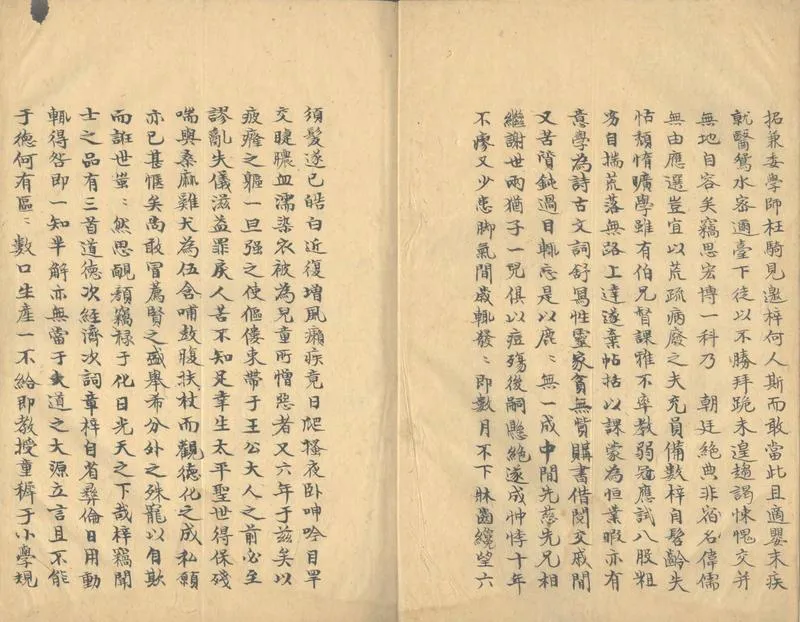 招兼委學師枉騎見邀梓何人斯而敢當此且適嬰末疾
就醫鴛水密邇臺下徒以不勝拜跪未遑趨謁悚愧交并
無地自容矣竊思宏博一科乃 朝廷絕典非宿名偉儒
無由應選豈宜以荒疏病廢之夫充員備數梓自髫齡失
怙頹惰曠學雖有伯兄督課雅不率教弱冠應試八股粗
疡自揣荒落無路上達遂棄帖括以課蒙為恒業暇亦有
意學為詩古文詞舒寫性靈家貧無貲購書借閱交戚間
又苦質鈍過目輒忘是以鹿鹿無一成中間先慈先兄相
繼謝世兩猶子一兒俱以痘殤後嗣懸絕遂成忡悸十年
不瘳又少患脚氣間歲輒發發即數月不下牀齒纔望六
須髮遂已皓白近復增風癩疾竟日爬搔夜卧呻吟目睪
交睫膿血濡染衣被為兒童所憎惡者又六年于茲矣以
疲癃之軀一旦强之使傴僂束帶于王公大人之前必至
謬亂失儀滋益罪戾人苦不知足幸生太平聖世得保殘
喘與桑麻雞犬為伍含哺鼓腹扶杖而觀德化之成私願
亦已甚愜矣尚敢冒薦賢之盛舉希分外之殊寵以自欺
而誑世蚩蚩然思靦顏竊祿于化日光天之下哉梓竊聞
士之品有三首道德次經濟次詞章梓自省彝倫日用動
輒得咎即一知半解亦無當于大道之大源立言且不能
于德何有區區數口生產一不給即教授童穉于小學規